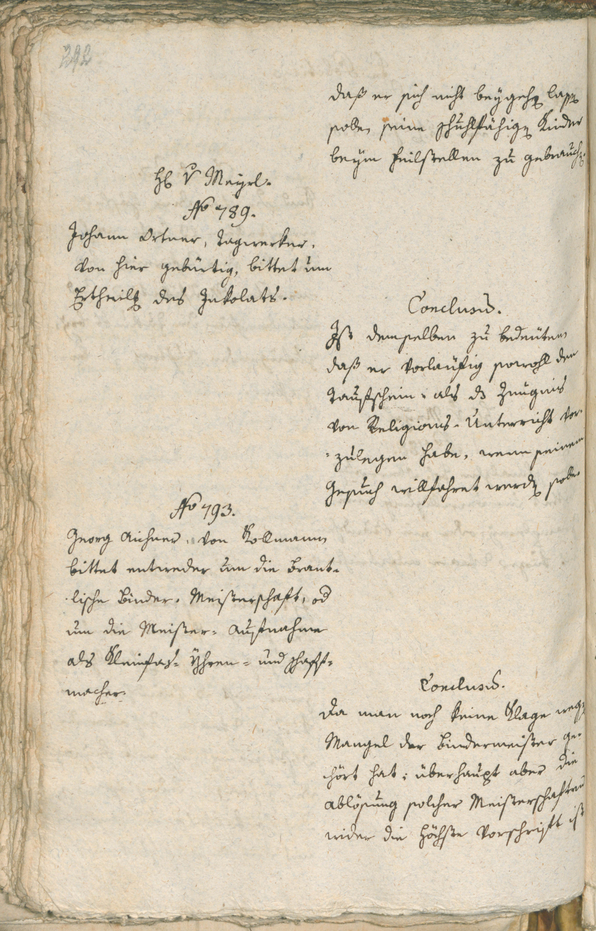 292
daß er sich nicht beygehen lassen
solle, seine schuhlfähige Kinder
beym Feilstellen zu gebrauchen.
H: v Mayrl.
No 789.
Johann Ortner, Tagwerker,
von hier gebürtig, bittet um
Ertheilg des Inkolats.
Conclusū.
Ist demselben zu bedeuten,
daß er vorläufig sowohl den
Taufschein, als ds Zeugnis
von Religions-Unterricht vor-
zulegen habe, wenn seinem
Gesuch willfahret werden solle.
No 793.
Georg Aichner, von Kollmann
bittet entweder um die
Binder-Meisterschaft, od
um die Meister-Aufnahme
als Kleinfas- Yhren- und Schaff-
macher.
Conclusū.
Da man noch keine Klage wegen
Mangel der Bindermeister ge-
hört hat; überhaupt aber die
Ablösung solcher Meisterschaften
wider die höchste Vorschrift ist